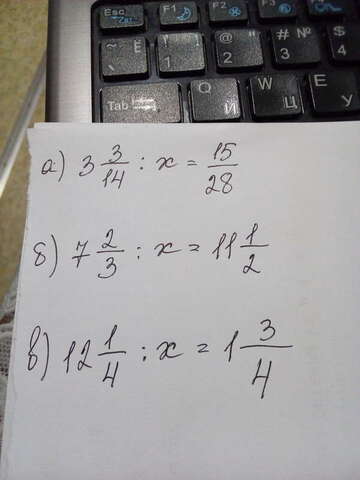 Esc F1 F2 F3
~ Ё ! 1 @ " 2 # № 3 $ 4
Tab Q Й W Ц E У
а) 3 3/14 : x = 15/28
б) 7 2/3 : x = 11 1/2
в) 12 1/4 : x = 1 3/4